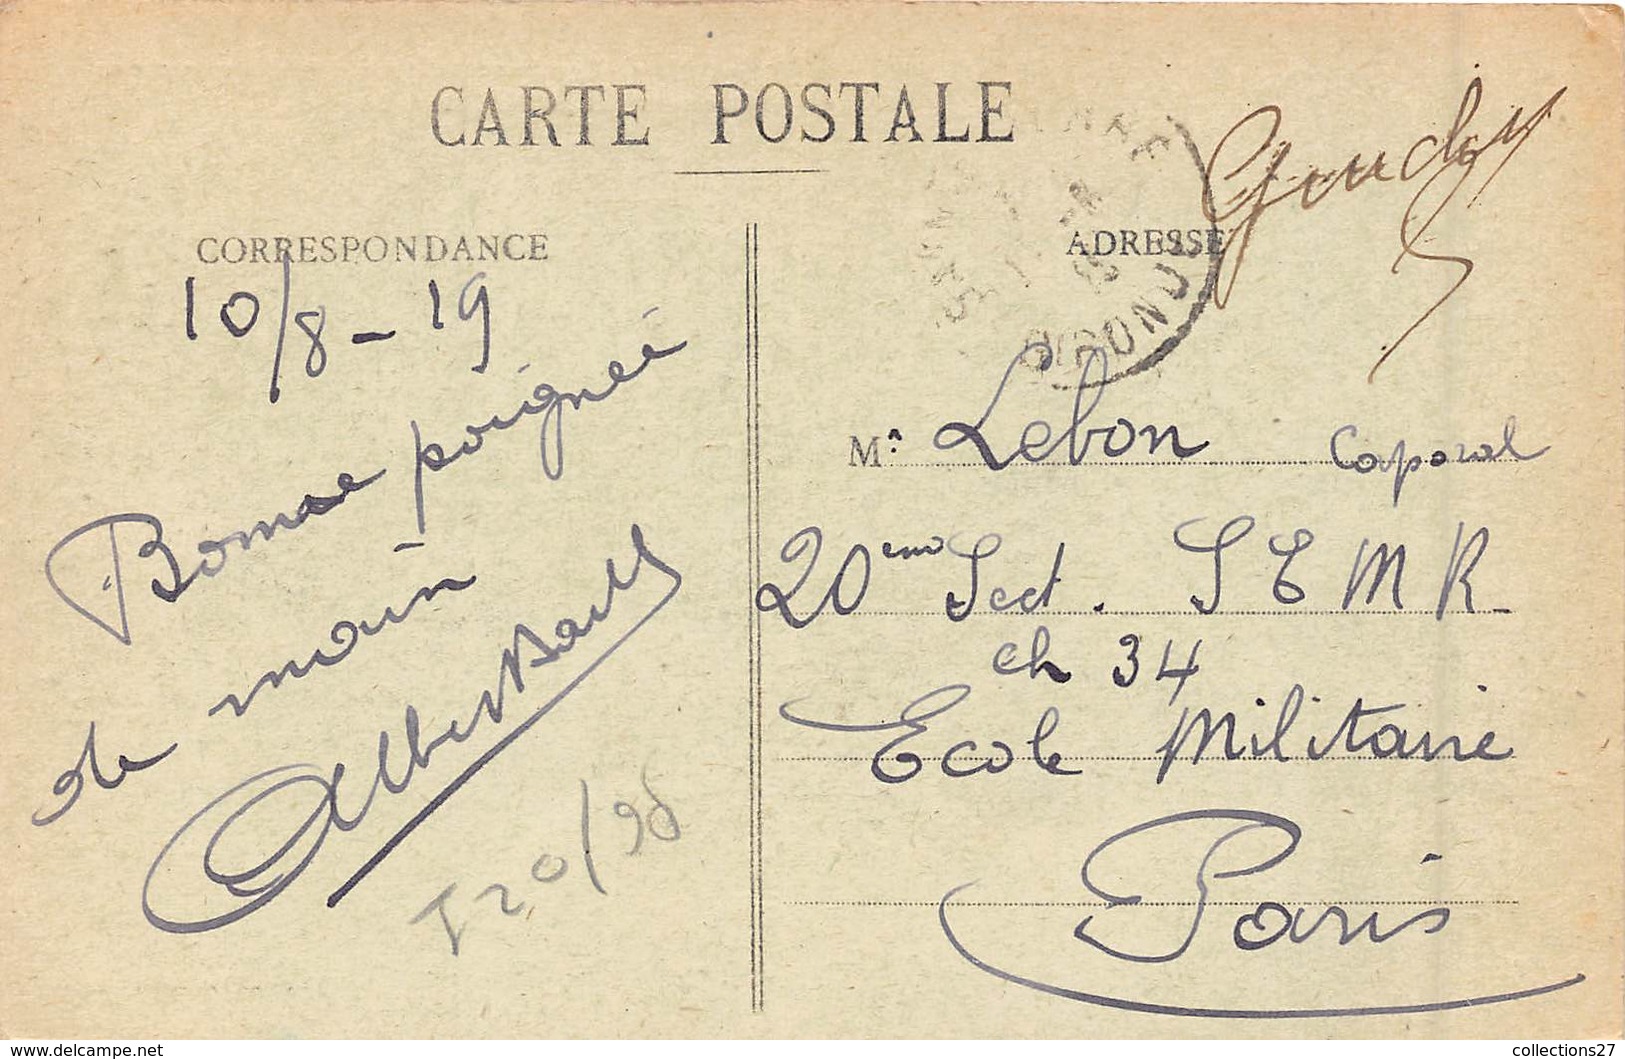 CARTE POSTALE
CORRESPONDANCE
10/8 - 19
Bonne poignée
de main
Albert
ADRESSE
GIRONDE
Mr. Lebon Caporal
20eme Sect. S E M R
ch 34
Ecole Militaire
Paris
collections27